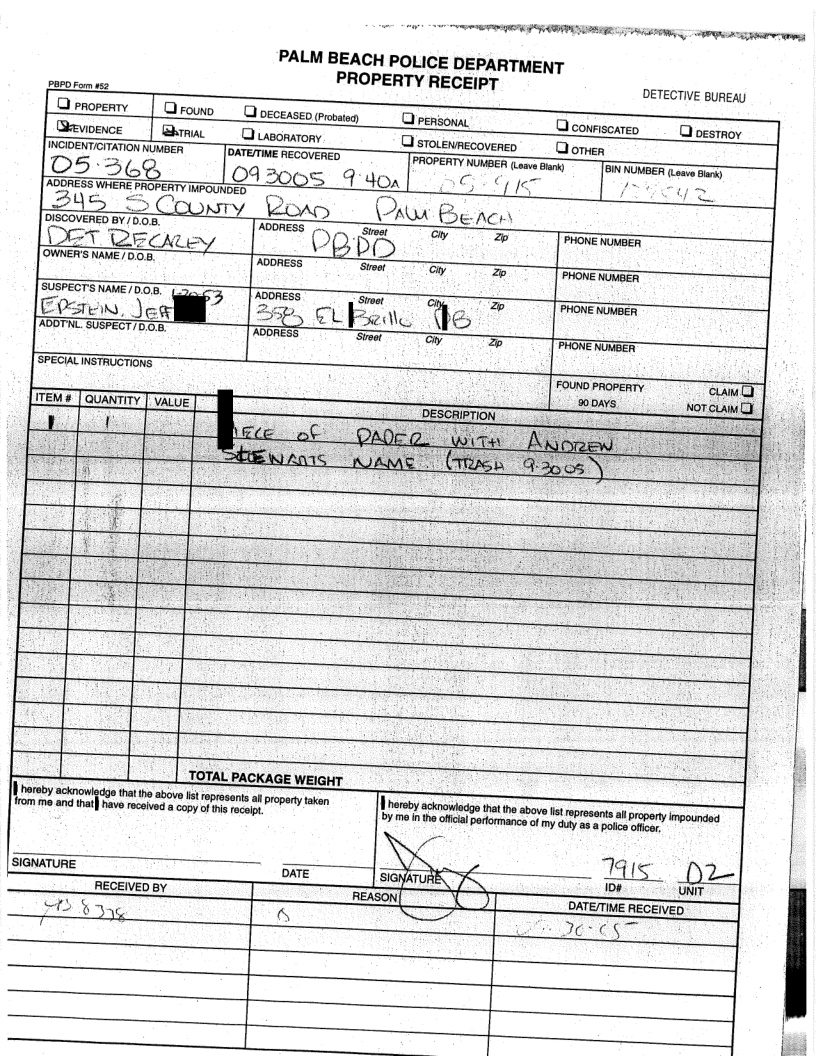 PALM BEACH POLICE DEPARTMENT
PROPERTY RECEIPT
PBPD Form #52
DETECTIVE BUREAU
PROPERTY FOUND DECEASED (Probated) PERSONAL CONFISCATED DESTROY
EVIDENCE TRIAL LABORATORY STOLEN/RECOVERED OTHER
INCIDENT/CITATION NUMBER DATE/TIME RECOVERED PROPERTY NUMBER (Leave Blank) BIN NUMBER (Leave Blank)
05-368 093005 9:40A 05-915
ADDRESS WHERE PROPERTY IMPOUNDED
345 S COUNTY ROAD PALM BEACH
DISCOVERED BY / D.O.B. ADDRESS Street City Zip PHONE NUMBER
DET. RECAREY PBPD
OWNER'S NAME / D.O.B. ADDRESS Street City Zip PHONE NUMBER
SUSPECT'S NAME / D.O.B. 1-20-53 ADDRESS Street City Zip PHONE NUMBER
EPSTEIN, JEFF 358 EL Brillo PB
ADDT'NL. SUSPECT / D.O.B. ADDRESS Street City Zip PHONE NUMBER
SPECIAL INSTRUCTIONS
FOUND PROPERTY CLAIM
90 DAYS NOT CLAIM
ITEM # QUANTITY VALUE DESCRIPTION
1 1 IECE OF PAPER WITH ANDREW
STEWARTS NAME (TRASH 9-30-05)
TOTAL PACKAGE WEIGHT
hereby acknowledge that the above list represents all property taken
from me and that have received a copy of this receipt.
hereby acknowledge that the above list represents all property impounded
by me in the official performance of my duty as a police officer.
7915 D2
SIGNATURE DATE SIGNATURE ID# UNIT
RECEIVED BY REASON DATE/TIME RECEIVED
8378